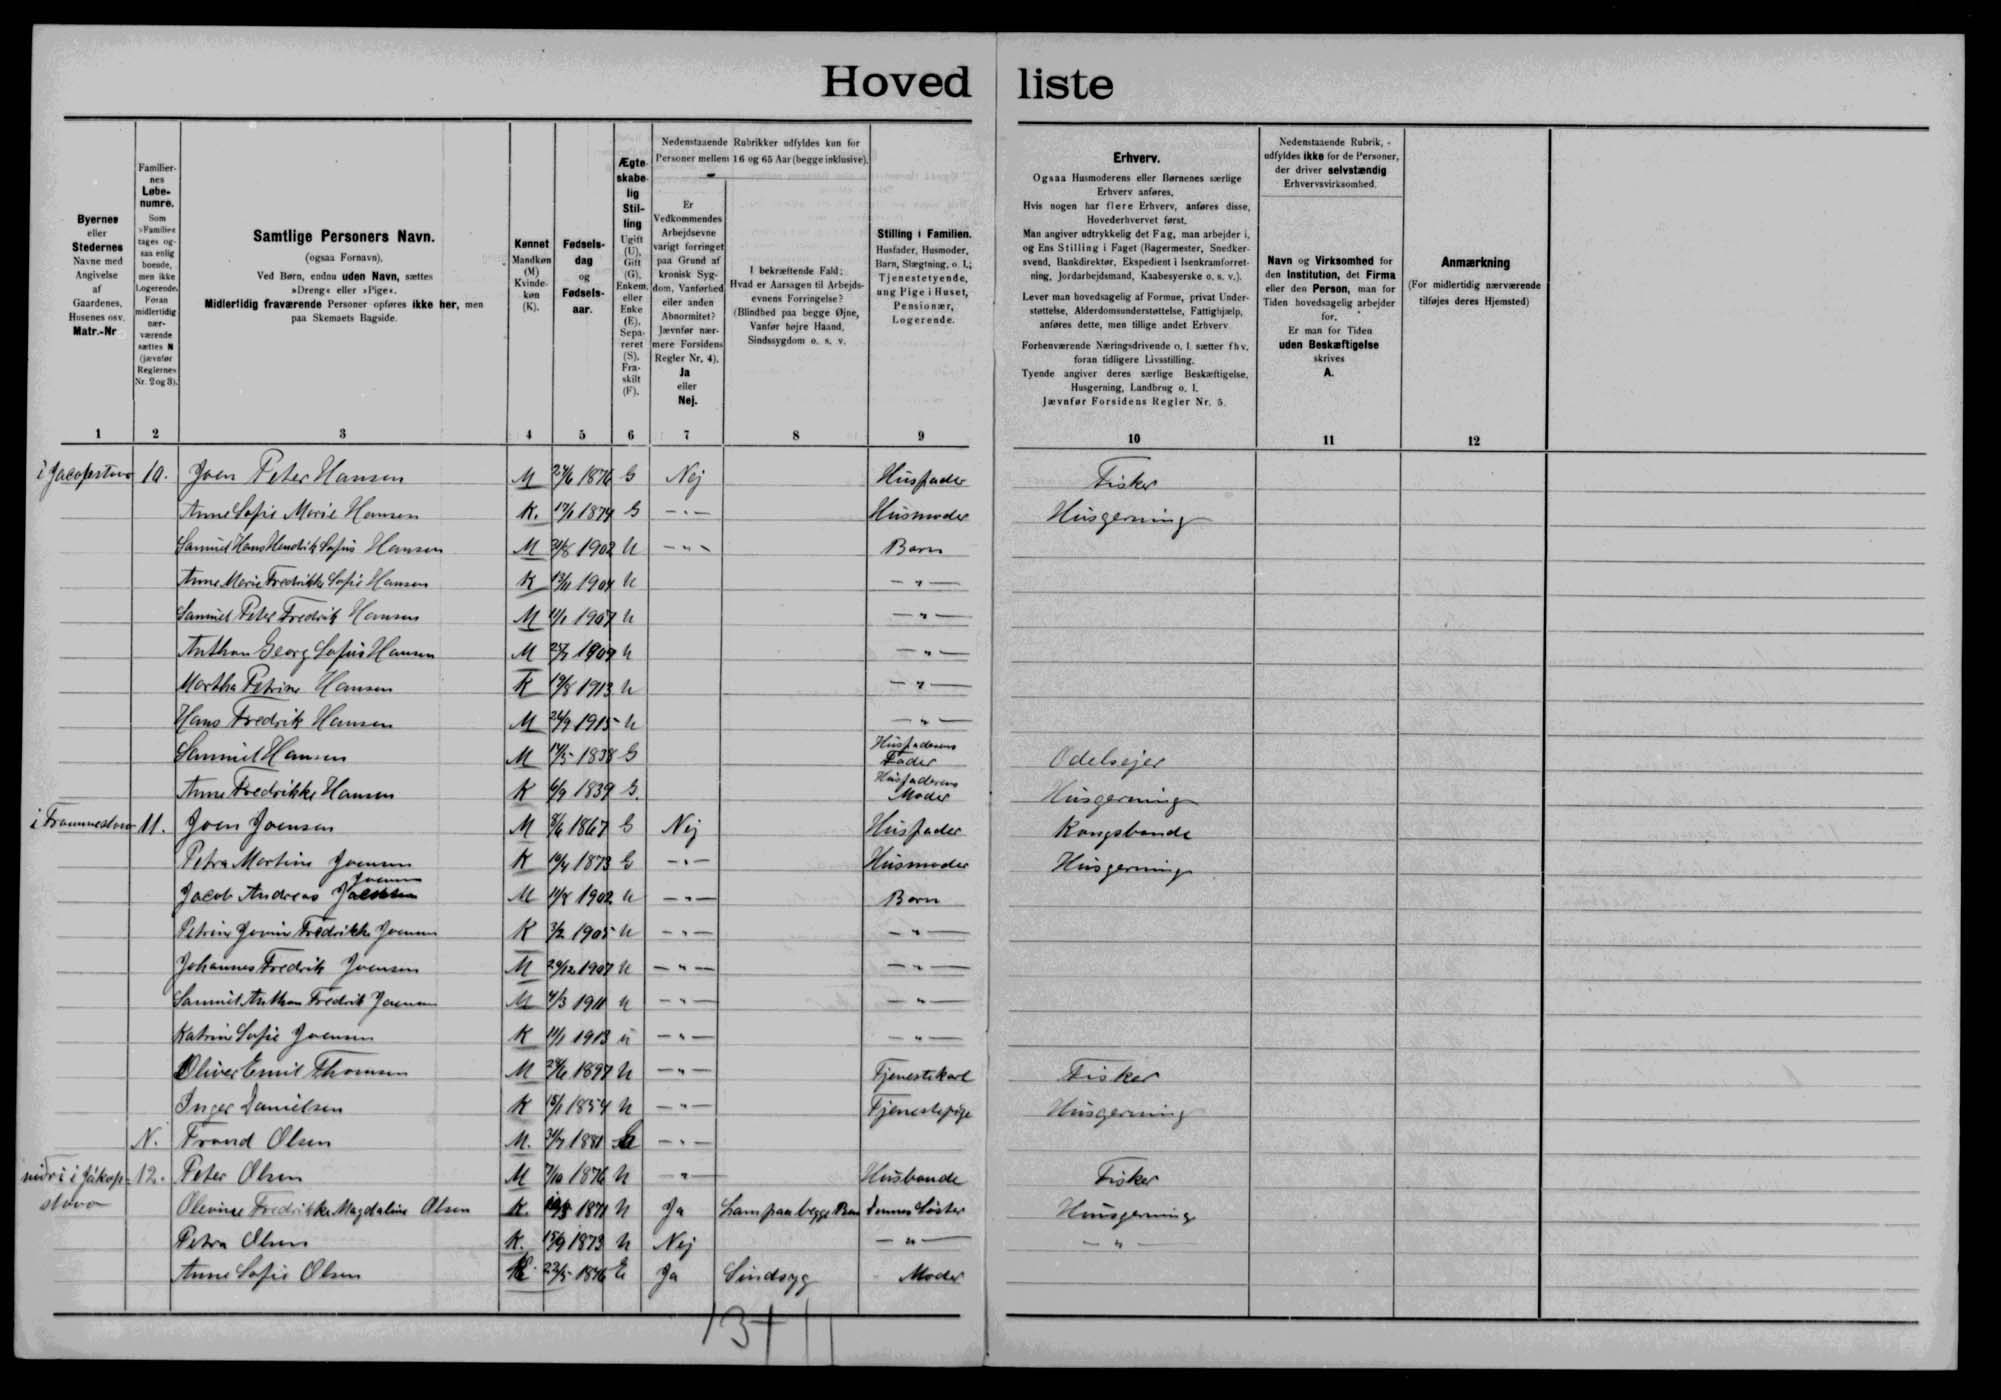 Hoved liste
Byernes
eller
Stedernes
Navne med
Angivelse
af
Gaardenes,
Husenes osv.
Matr.-Nr
Familier-
nes
Løbe-
numre.
Som
»Familie«
tages og-
saa enlig
boende,
men ikke
Logerende.
Foran
midlertidig
nær-
værende
sættes N
(jævnfør
Reglernes
Nr. 2 og 3).
Samtlige Personers Navn.
(ogsaa Fornavn).
Ved Børn, endnu uden Navn, sættes
»Dreng« eller »Pige«.
Midlertidig fraværende Personer opføres ikke her, men
paa Skemaets Bagside.
Kønnet
Mandkøn
(M)
Kvinde-
køn
(K).
Fødsels-
dag
og
Fødsels-
aar.
Ægte-
skabe-
lig
Stil-
ling
Ugift
(U),
Gift
(G),
Enkem.
eller
Enke
(E),
Sepa-
reret
(S).
Fra-
skilt
(F).
Nedenstaaende Rubrikker udfyldes kun for
Personer mellem 16 og 65 Aar (begge inklusive).
Er
Vedkommendes
Arbejdsevne
varigt forringet
paa Grund af
kronisk Syg-
dom, Vanførhed
eller anden
Abnormitet?
Jævnfør nær-
mere Forsidens
Regler Nr. 4).
Ja
eller
Nej.
I bekræftende Fald:
Hvad er Aarsagen til Arbejds-
evnens Forringelse?
(Blindhed paa begge Øjne,
Vanfør højre Haand,
Sindssygdom o. s. v.
Stilling i Familien.
Husfader, Husmoder,
Barn, Slægtning, o. l.;
Tjenestetyende,
ung Pige i Huset,
Pensionær,
Logerende.
Erhverv.
Ogsaa Husmoderens eller Børnenes særlige
Erhverv anføres.
Hvis nogen har flere Erhverv, anføres disse,
Hovederhvervet først.
Man angiver udtrykkelig det Fag, man arbejder i,
og Ens Stilling i Faget (Bagermester, Snedker-
svend, Bankdirektør, Ekspedient i Isenkramforret-
ning, Jordarbejdsmand, Kaabesyerske o. s. v.).
Lever man hovedsagelig af Formue, privat Under-
støttelse, Alderdomsunderstøttelse, Fattighjælp,
anføres dette, men tillige andet Erhverv
Forhenværende Næringsdrivende o. l. sætter fhv.
foran tidligere Livsstilling.
Tyende angiver deres særlige Beskæftigelse,
Husgerning, Landbrug o. l.
Jævnfør Forsidens Regler Nr. 5.
Nedenstaaende Rubrik,
udfyldes ikke for de Personer,
der driver selvstændig
Erhvervsvirksomhed.
Navn og Virksomhed for
den Institution, det Firma
eller den Person, man for
Tiden hovedsagelig arbejder
for.
Er man for Tiden
uden Beskæftigelse
skrives
A.
Anmærkning
(For midlertidig nærværende
tilføjes deres Hjemsted)
1 2 3 4 5 6 7 8 9 10 11 12
i Jacopsstovo 10. Joen Peter Hansen M 1876 G Nej Husfader Fisker
Anne Sofie Marie Hansen K. 1874 G -"- Husmoder Husgerning
Samuel Hans Hendrik Sofus Hansen M 1902 U -"- Barn
Anne Marie Fredrikke Sofie Hansen K 13/11 1904 U -"-
Samuel Peter Fredrik Hansen M 1907 U -"-
Anthon Georg Sofus Hansen M 1909 U -"-
Martha Petrine Hansen K 19/8 1913 U -"-
Hans Fredrik Hansen M 26/9 1915 U -"-
Samuel Hansen M 17/5 1838 G Husfaderens Fader Odelsejer
Anne Fredrikke Hansen K 6/9 1839 G. Husfaderens Moder Husgerning
i Frammestovo 11. Joen Joensen M 1867 G Nej Husfader Kongsbonde
Petra Martine Joensen K 1873 G -"- Husmoder Husgerning
Jacob Andreas Joensen M 11/8 1902 U -"- Barn
Petrine Fredrikke Joensen K 3/2 1905 U -"- -"-
Johannes Fredrik Joensen M 24/12 1907 U -"- -"-
Samuel Anthon Fredrik Joensen M 4/3 1911 U -"- -"-
Katrine Sofie Joensen K 11/1 1913 U -"- -"-
Oliver Emil Thomsen M 1897 U -"- Tjenestekarl Fisker
Inger Danielsen K 15/1 1854 U -"- Tjenestepige Husgerning
N. Trond Olsen M. 1881 -"-
niðri í Jákop- 12. Peter Olsen M 7/10 1876 U -"- Husbonde Fisker
stovo Olevine Fredrikke Magdalene Olsen K. 1871 U Ja Lam paa begge Ben dennes Søster Husgerning
Petra Olsen K. 15/9 1873 U Nej -"- -"-
Anne Sofie Olsen K. 22/5 1846 E Ja Sindsyg Moder
13+11